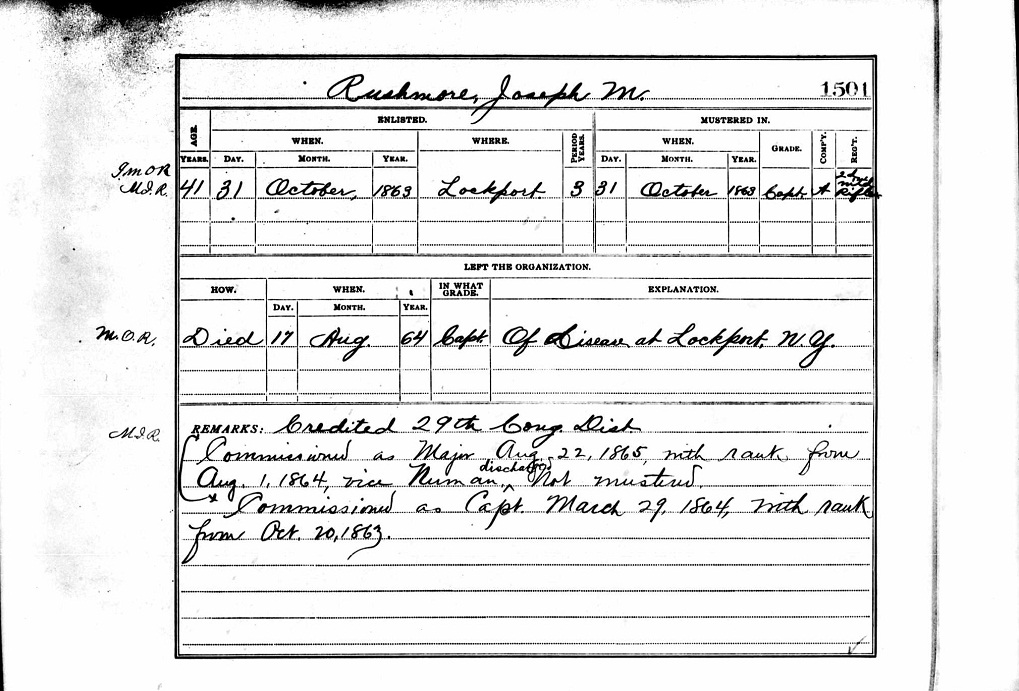 Rushmore, Joseph M. 1501
ENLISTED. MUSTERED IN.
AGE. WHEN. WHERE. PERIOD YEARS. WHEN. GRADE. COMP'Y. REG'T.
YEARS. DAY. MONTH. YEAR. DAY. MONTH. YEAR.
M.I.R. 41 31 October, 1863 Lockport. 3 31 October 1863 Capt. A 2d Rifles
LEFT THE ORGANIZATION.
HOW. WHEN. IN WHAT GRADE. EXPLANATION.
DAY. MONTH. YEAR.
M.O.R. Died 17 Aug. 64 Capt. Of Disease at Lockport, N.Y.
M.I.R. REMARKS: Credited 29th Cong. Dist.
Commissioned as Major Aug. 22, 1865, with rank from
Aug. 1, 1864, vice Numan, discharged Not mustered.
Commissioned as Capt. March 29, 1864, with rank
from Oct. 20, 1863.